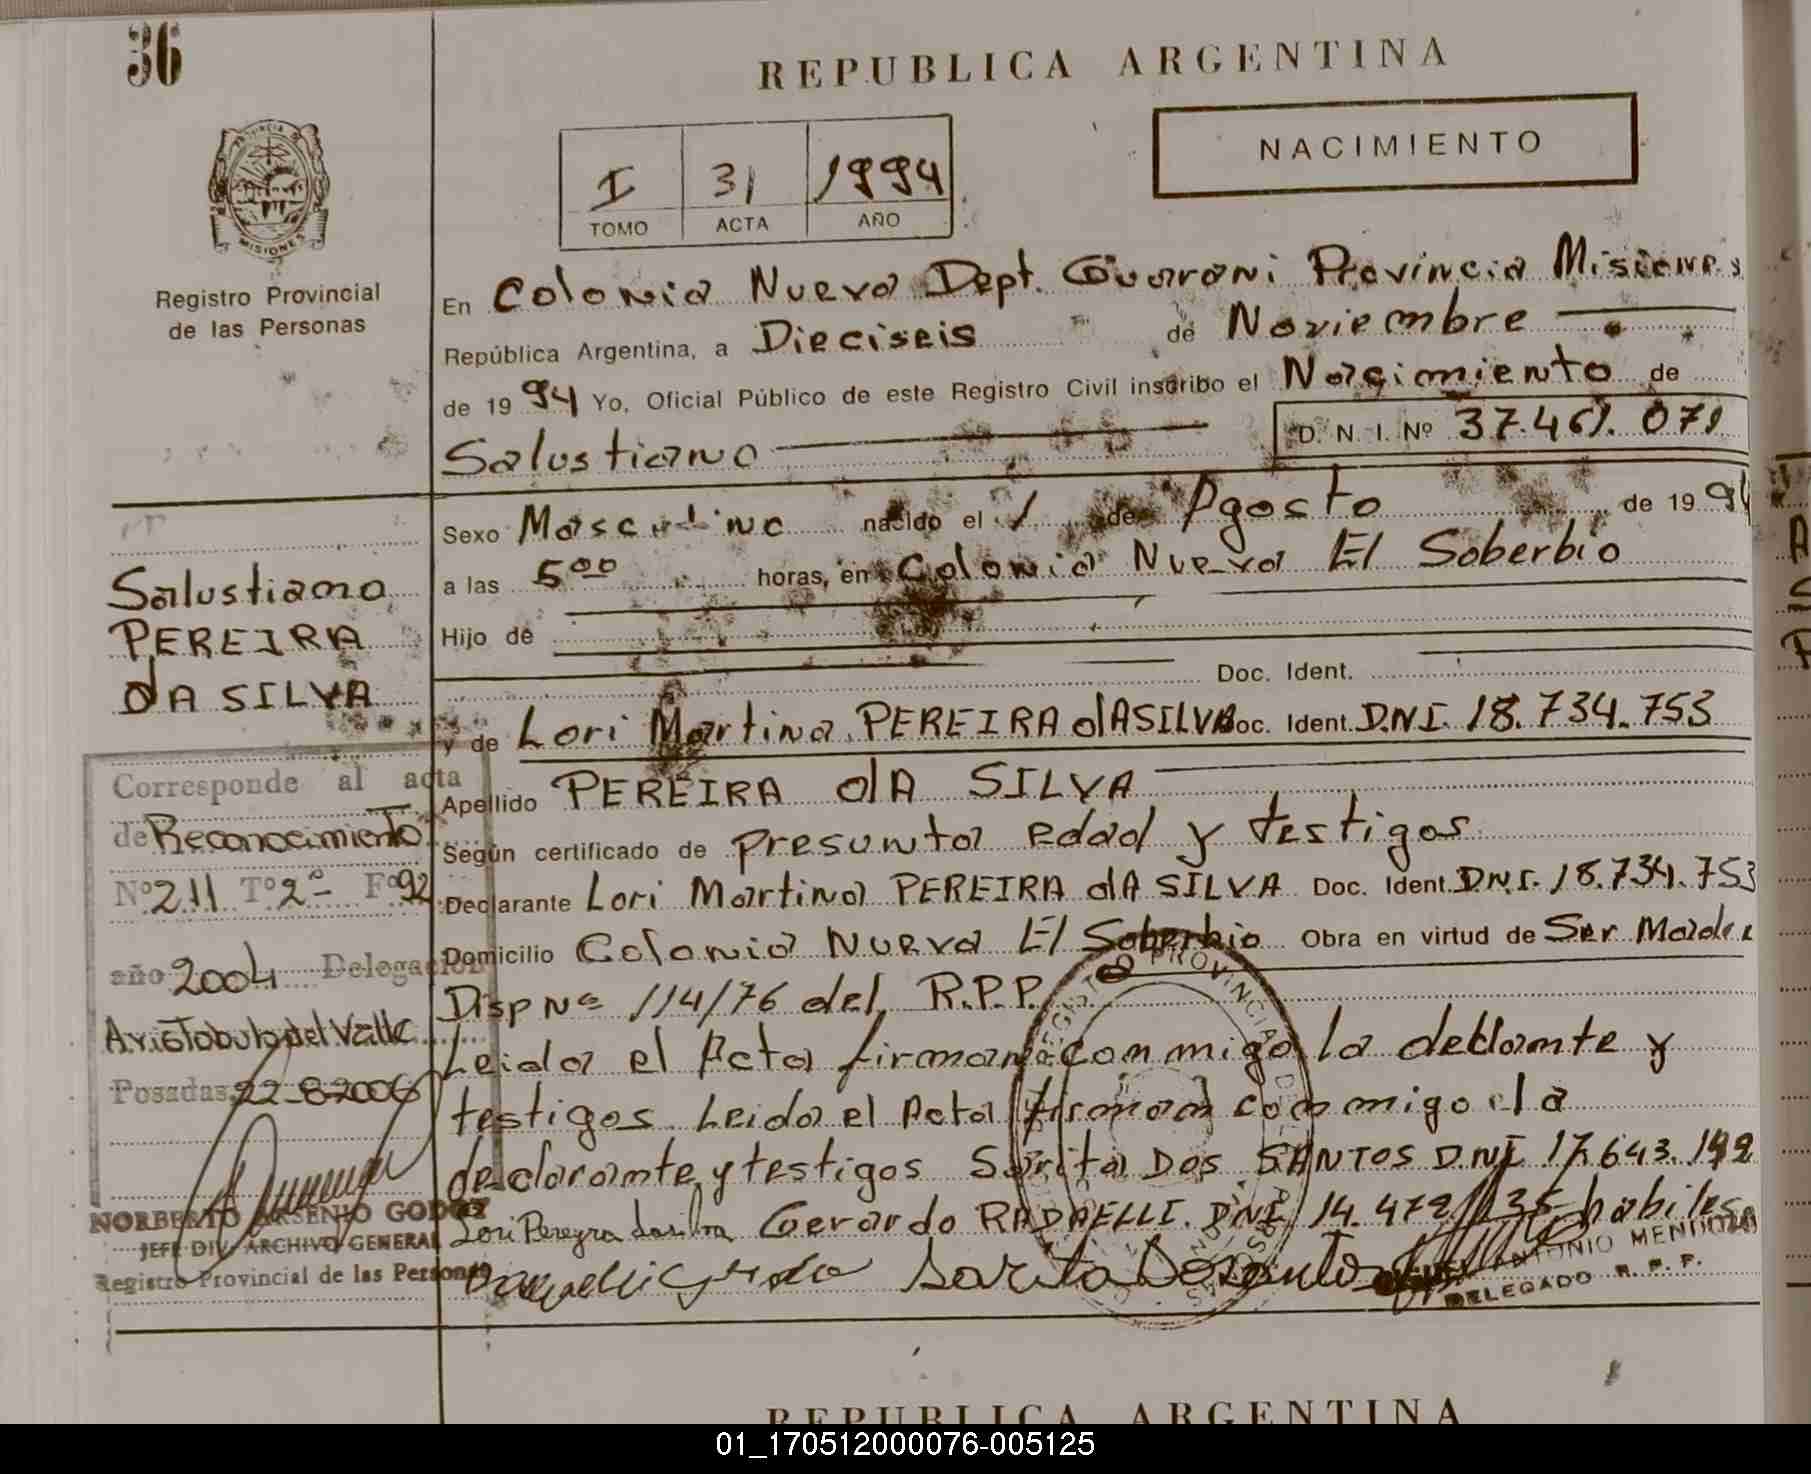 36
REPUBLICA ARGENTINA
NACIMIENTO
PROVINCIA DE
MISIONES
Registro Provincial
de las Personas
I 31 1994
TOMO ACTA AÑO
En Colonia Nueva Dept. Guarani Provincia Misiones
República Argentina, a Dieciseis de Noviembre
de 1994 Yo, Oficial Público de este Registro Civil inscribo el Nacimiento de
Salustiano D. N. I. Nº
Sexo Masculino nacido el 1 de Agosto de 1994
a las 5 00 horas, en Colonia Nueva El Soberbio
Hijo de
Doc. Ident.
y de Lori Martina PEREIRA dA SILVA Doc. Ident. D.N.I. 18.734.753
Apellido PEREIRA dA SILVA
Según certificado de presunta edad y testigos
Declarante Lori Martina PEREIRA dA SILVA Doc. Ident. D.N.I. 18.734.753
Domicilio Colonia Nueva El Soberbio Obra en virtud de Ser Madre
Disp Nº 114/76 del R.P.P.
Leida el Acta firman conmigo la declante y
testigos Leida el Acta firman conmigo la
declarante y testigos Sarita DOS SANTOS D.N.I. 17.643.192
Lori Pereyra dasilva Gerardo RADAELLI. D.N.I. habiles
Sarita Dosantos
ANTONIO MENDOZA
DELEGADO R. P. P.
Salustiano
PEREIRA
dA SILVA
Corresponde al acta
de Reconocimiento
Nº 211 Tº 2º Fº 92
año 2004 Delegación
Aristobulo del Valle
Posadas, 22-8-2006
NORBERTO ARSENIO GODOY
JEFE DIV. ARCHIVO GENERAL
Registro Provincial de las Personas
REPUBLICA ARGENTINA
01_170512000076-005125